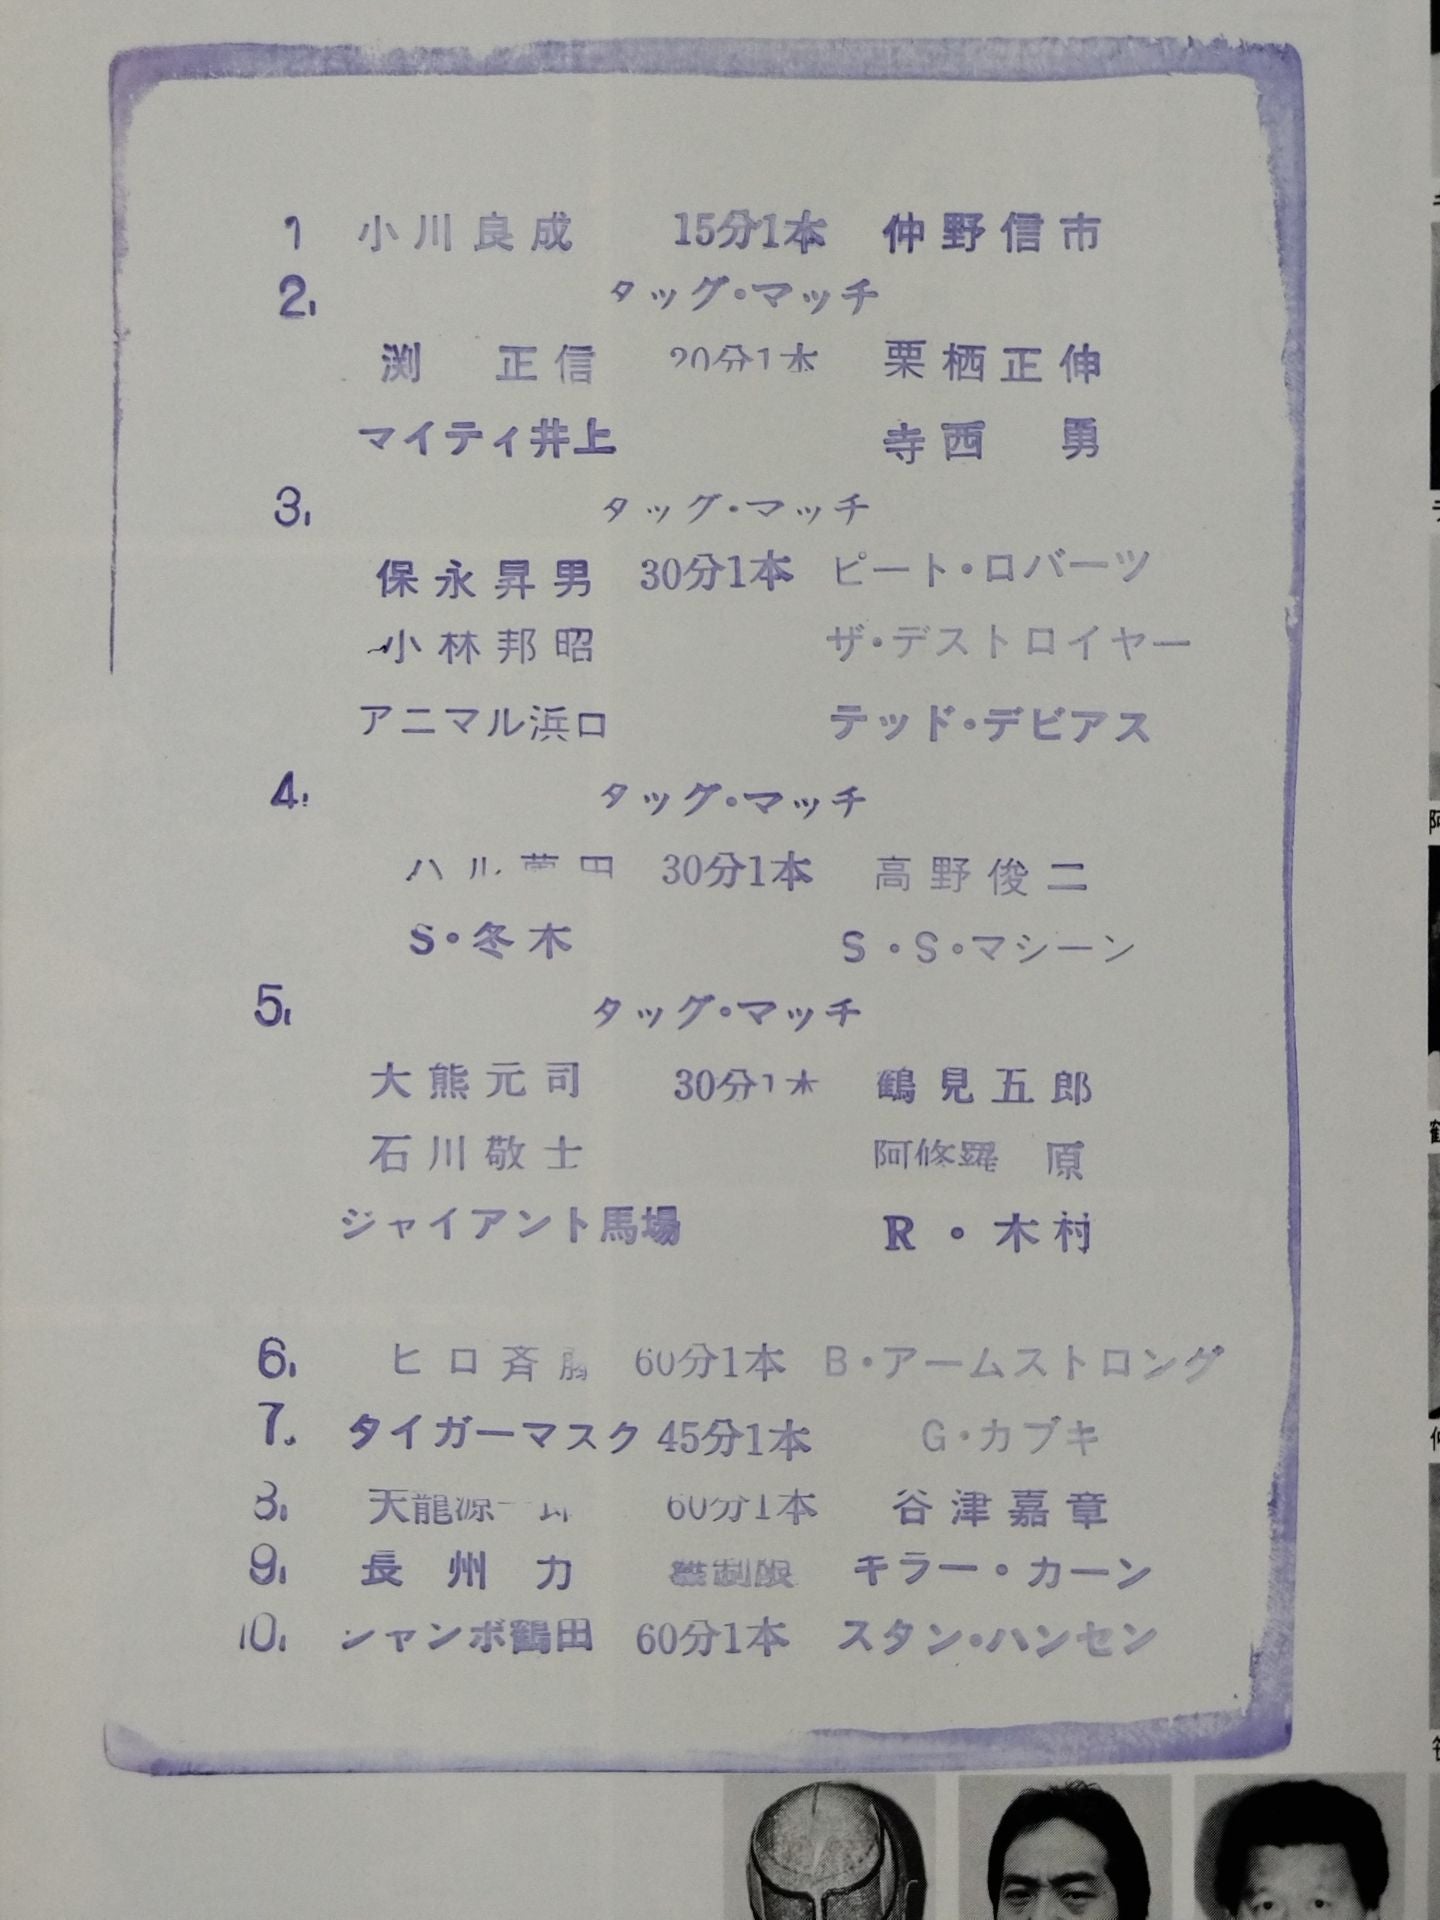 1 小川良成 15分1本 仲野信市
2. タッグ・マッチ
渕 正信 20分1本 栗栖正伸
マイティ井上 寺西 勇
3. タッグ・マッチ
保永昇男 30分1本 ピート・ロバーツ
小林邦昭 ザ・デストロイヤー
アニマル浜口 テッド・デビアス
4. タッグ・マッチ
ハル薗田 30分1本 高野俊二
S・冬木 S・S・マシーン
5. タッグ・マッチ
大熊元司 30分1本 鶴見五郎
石川敬士 阿修羅 原
ジャイアント馬場 R・木村
6. ヒロ斉藤 60分1本 B・アームストロング
7. タイガーマスク 45分1本 G・カブキ
8. 天龍源一郎 60分1本 谷津嘉章
9. 長州力 無制限 キラー・カーン
10. ジャンボ鶴田 60分1本 スタン・ハンセン